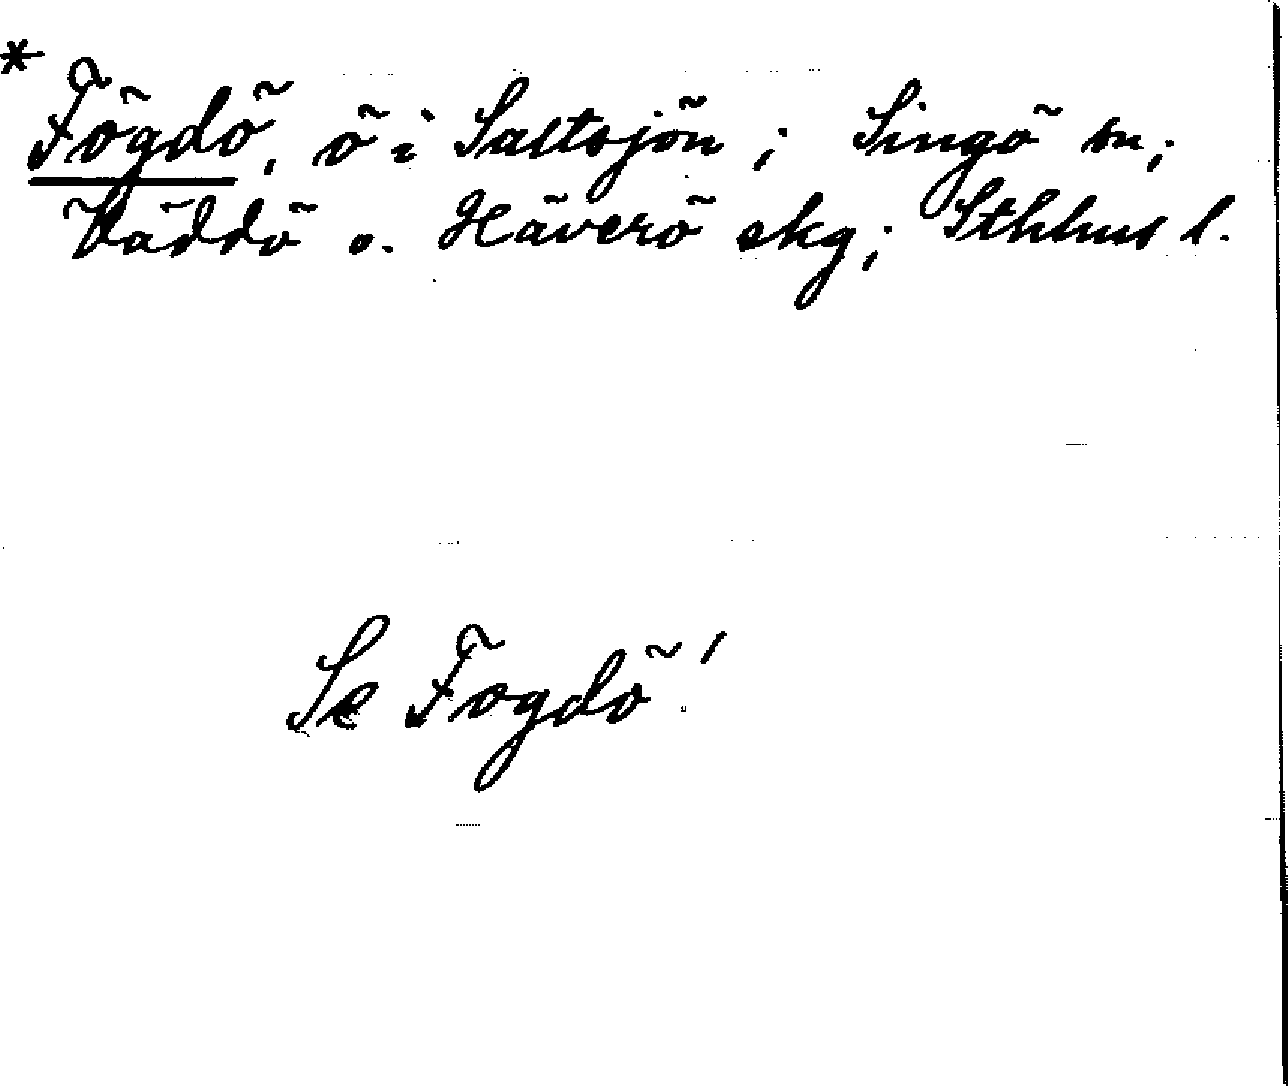 * Fögdö, ö i Saltsjön; Singö sn;
Väddö o. Häverö skg; Sthlms l.
Se Fogdö!